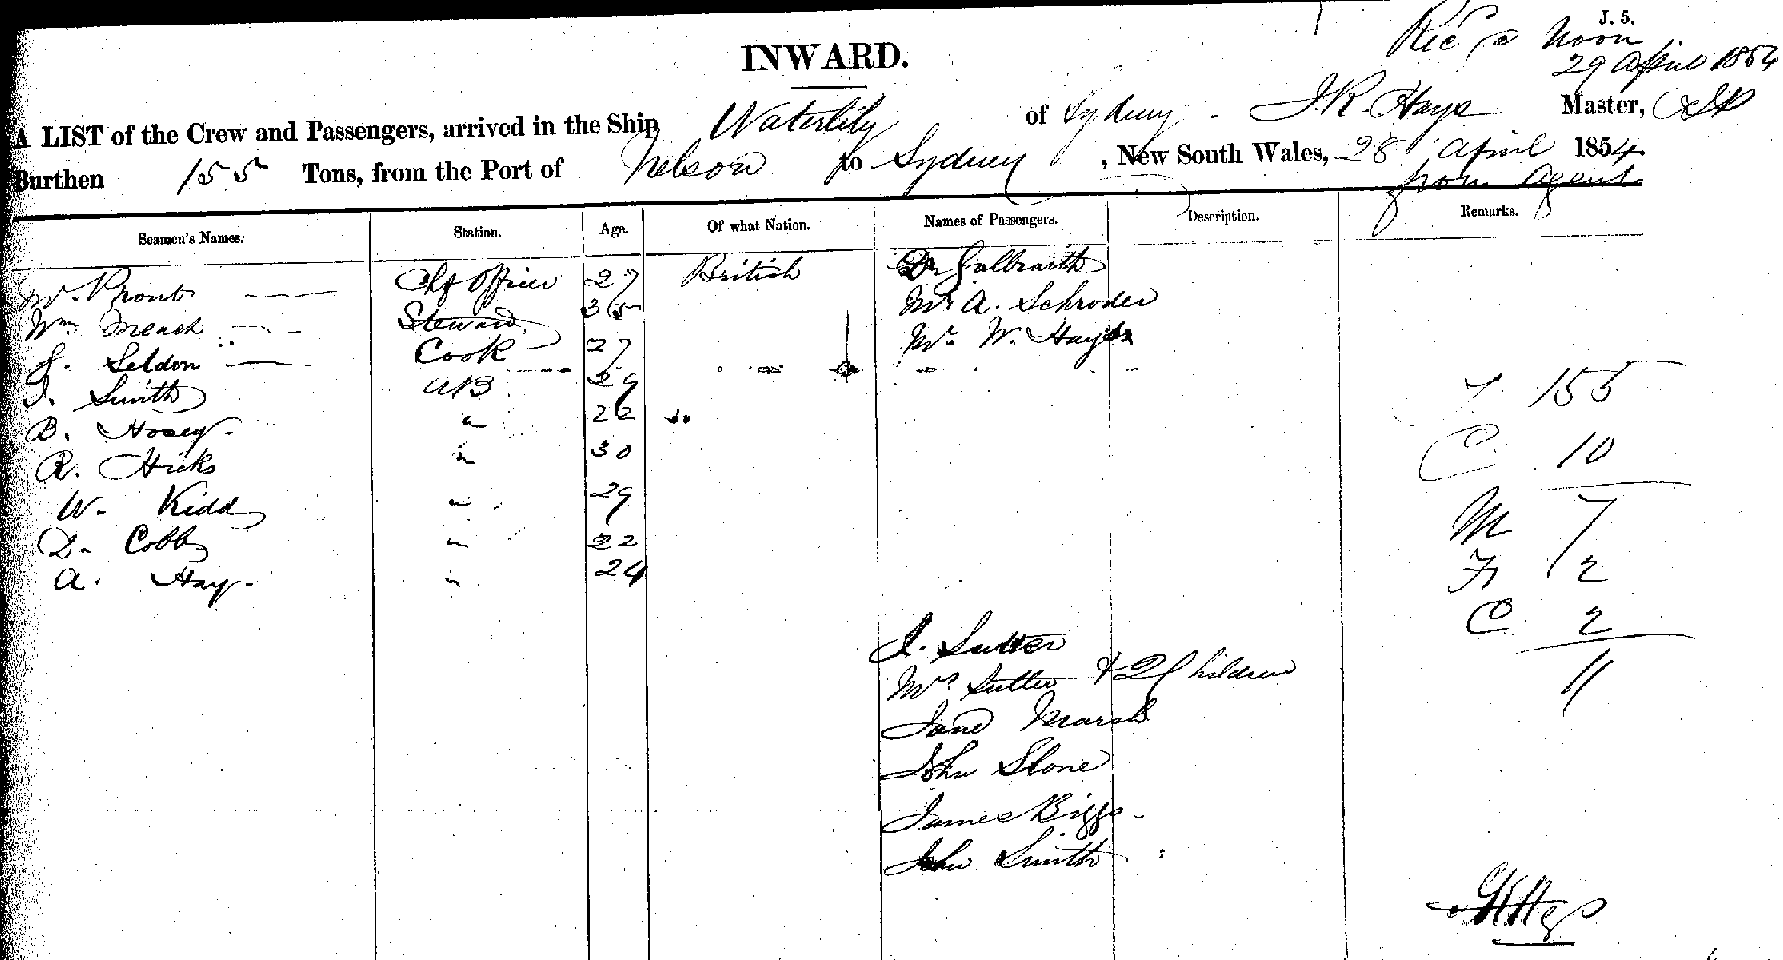 J. 5.
Noon
29 April 1854
INWARD.
A LIST of the Crew and Passengers, arrived in the Ship Waterlily of Sydney. J.R. Hays Master,
Burthen 155 Tons, from the Port of Nelson to Sydney, New South Wales, 28 April 1854
from Agent
Seamen's Names. Station. Age. Of what Nation. Names of Passengers. Description. Remarks.
W. Prout Chf Officer 27 British Dr Galbraith
Wm Meach Steward 35 Mr A. Schroder
J. Seldon Cook 27 Mr W. Hayes
J. Smith AB. 29
B. Hosey " 22
R. Hicks " 30
W. Kidd " 29
D. Cobb " 22
A. Hay. " 24
155
C. 10
M 7
F 2
C 2
11
J. Sutter
Mrs Sutter & 2 Children
Jane Marsh
John Stone
James Biggs
John Smith